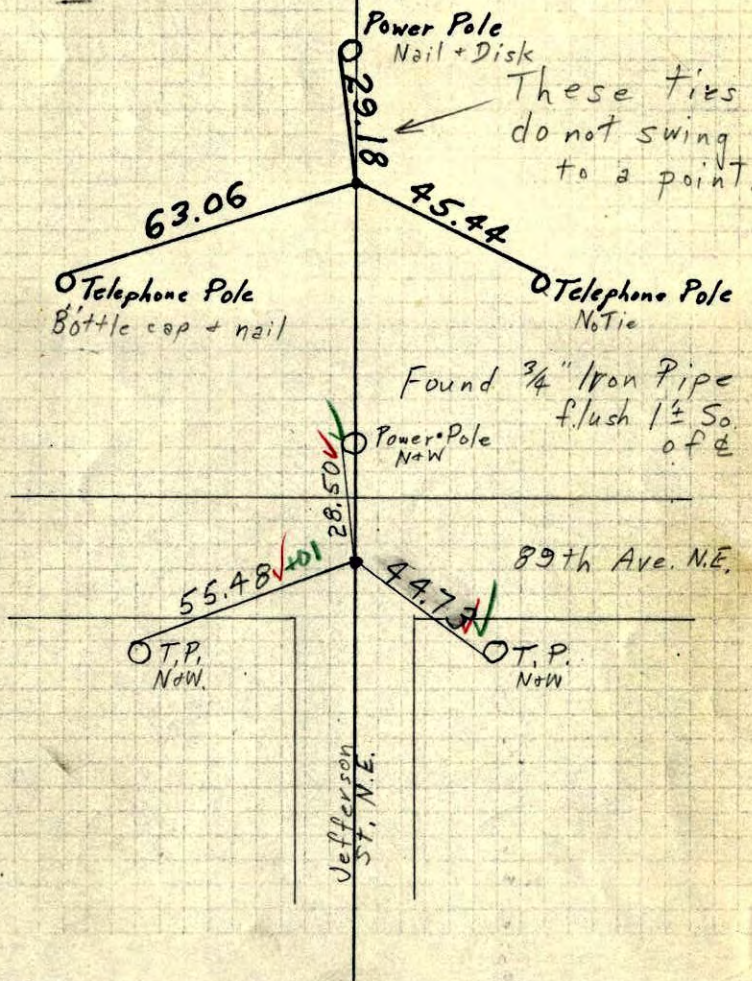 Power Pole
Nail + Disk
29.18
These ties
do not swing
to a point
63.06
45.44
Telephone Pole
Bottle cap + nail
Telephone Pole
No Tie
Found 3/4" Iron Pipe
flush 1'± So.
of ℄
Power Pole
N+W
28.50
89th Ave. N.E.
55.48 +01
T.P.
N+W.
T.P.
N+W
Jefferson
St. N.E.